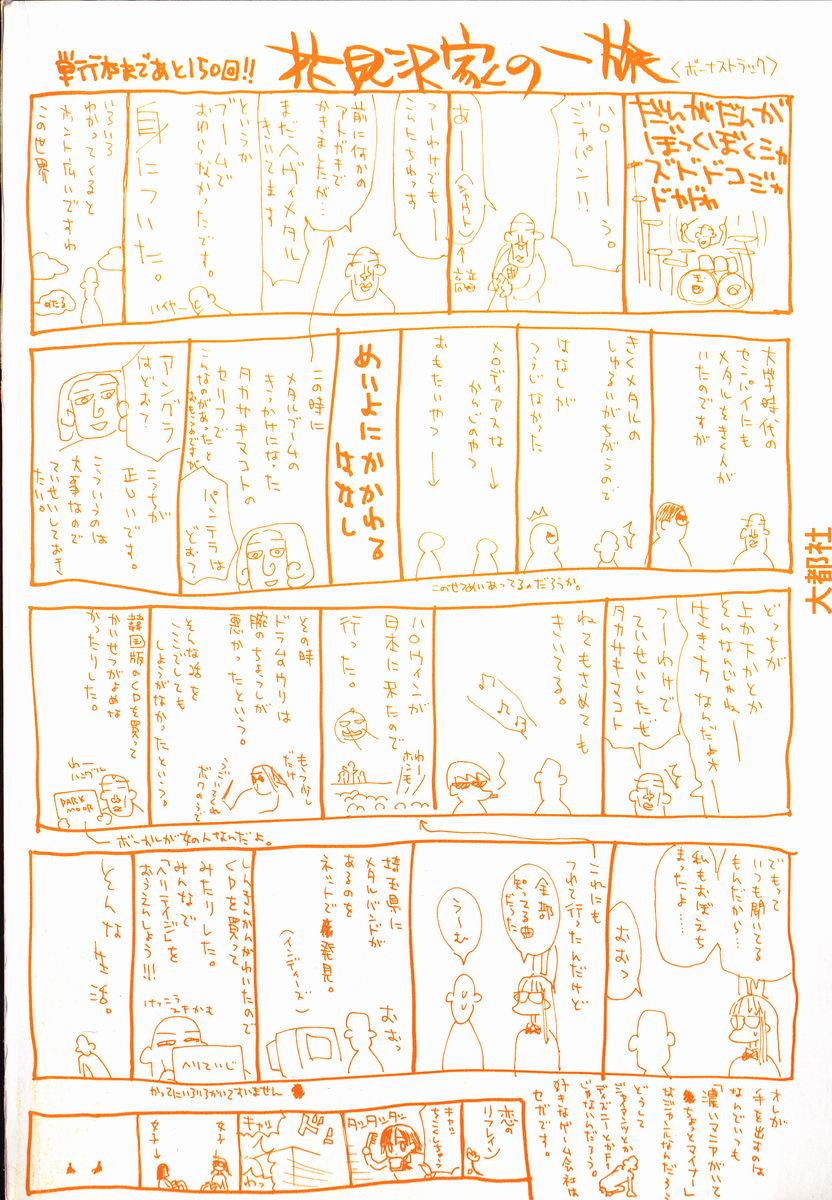 単行本まであと150回!!
花見沢家の一旅
〈ボーナストラック〉
だんがだんが
ぼっくぼく
ズドドコ
ドガガ
ハローう。
ジャパン!!
あ——
(シャウト)
つーわけでもー
こんちわっす
前に何かの
アトガキで
かきましたが…
まだヘヴィメタル
きいてます
というか
ブームで
おわらなかったです。
身についた。
ハイヤー
いろいろ
わかってくると
ホント広いですね
この世界
めたる
大学時代の
センパイにも
メタルをきく人が
いたのですが
きくメタルの
しゅるいがちがうので
はなしが
つうじなかった
メロディアスな
かんじのやつ
おもたいやつ
このせつめいあってるんだろうか。
めいよにかかわる
はなし
この時に
メタルブームの
きっかけになった
タカサキマコトの
セリフで
こんなのがあったと
おもうのですが
パンテラは
どお?
アングラ
はどお?
こっちが
正しいです。
こういうのは
大事なので
ていせいしておき
たい。
どっちが
上か下かとか
そんなんじゃねー
生き方なんだよ
つーわけで
ていせいしただぜ
タカサキマコト
ねてもさめても
きいてる。
ハロウィンが
日本に来たので
行った。
わー
ホンモノ
その時
ドラムのウリは
腕のちょうしが
悪かったという。
もう少し
だけ
うごいてくれ
ボクのうで
そんな話を
ここでしても
しょうがなかったという。
韓国版のCDを買って
かいせつがよめな
かったりした。
わー
ハングル
DARK
MOOR
ボーカルが女の人なんだよ。
でもって
いつも聞いてる
もんだから…
私もおぼえち
まったよ……
おおっ
これにも
つれて行ったんだけど
全部
知ってる曲
だった
うーむ
埼玉県に
メタルバンドが
あるのを
ネットで発見。
(インディーズ)
おおっ
しんきんかんがわいたので
CDを買って
みたりした。
みんなで
「ヘリティイジ」を
おうえんしょう!!!
けっこう
スキかも
へりていじ
かってにいろいろかいてすいません
そんな
生活。
オレが
手を出すのは
なんでいつも
「濃いマニアがいて
ちょっとマイナー」
なジャンルなんだろう
どうして
ジャマニとか
ディズニーとかだ
じゃなんだろう
好きなゲーム会社は
セガです。
恋の
リフレイン
キャッ
ちこくしちゃう
ダッダッダッ
ドン
キャッ
わっ
女子→
女子→
大都社